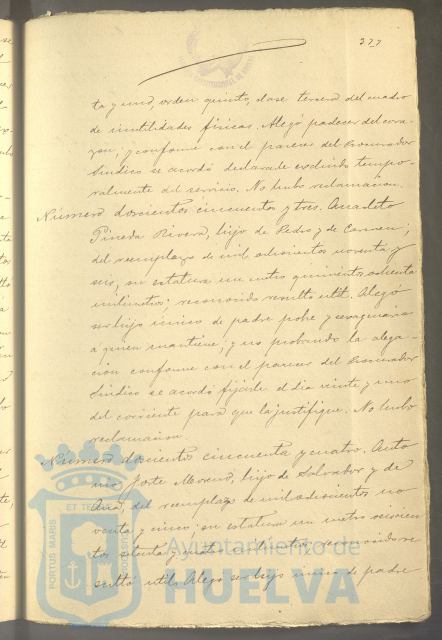 377
ta y uno, orden quinto, clase tercera del cuadro
de inutilidades físicas. Alegó padecer del cora-
zon; y conforme con el parecer del Procurador
Síndico se acordó declararle excluido tempo-
ralmente del servicio. No hubo reclamacion.
Número doscientos cincuenta y tres. Anacleto
Pineda Rivera, hijo de Pedro y de Carmen;
del reemplazo de mil ochocientos noventa y
seis, su estatura un metro quinientos ochenta
milimetros; reconocido resultó util. Alegó
ser hijo único de padre pobre y sexagenario
á quien mantiene; y no probando la alega-
cion conforme con el parecer del Procurador
Síndico se acordó fijarle el dia veinte y uno
del corriente para que la justifique. No hubo
reclamacion
Número doscientos cincuenta y cuatro. Anto
nio Moreno, hijo de Salvador y de
Ana, del reemplazo de mil ochocientos no
venta y cinco su estatura un metro seiscien
tos setenta y cuatro milimetros, reconocido re
sultó util. Alegó ser hijo único de padre
PORTUS MARIS ET TERRAE
Ayuntamiento de
HUELVA